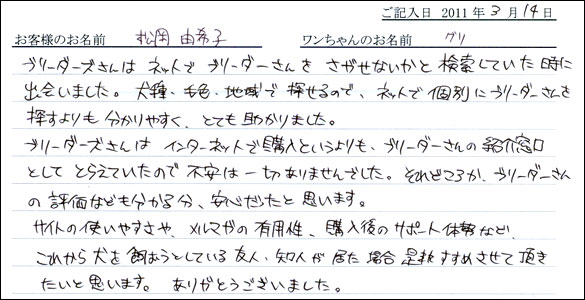 ご記入日 2011年 3月 14日
お客様のお名前 松岡 由希子 ワンちゃんのお名前 グリ
ブリーダーズさんは ネットで ブリーダーさんを さがせないかと 検索していた時に
出会いました。犬種・毛色・地域で 探せるので、ネットで 個別にブリーダーさんを
探すよりも 分かりやすく、とても 助かりました。
ブリーダーズさんは インターネットで購入というよりも、ブリーダーさんの 紹介窓口
として とらえていたので 不安は 一切ありませんでした。それどころか、ブリーダーさん
の 評価なども分かる分、安心だったと 思います。
サイトの使いやすさや、メルマガの 有用性、購入後のサポート体勢など、
これから 犬を 飼おうとしている 友人、知人が 居た 場合 是非 すすめさせて 頂き
たいと思います。 ありがとうございました。